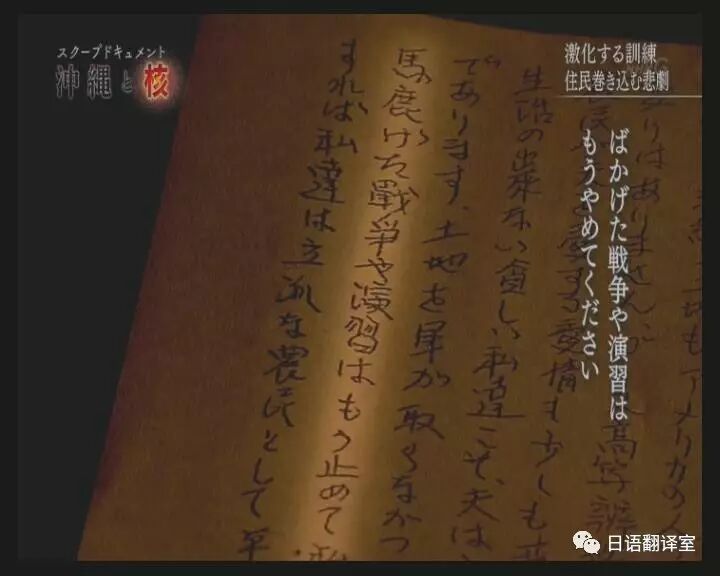 スクープドキュメント
沖縄と核
激化する訓練
住民巻き込む悲劇
ばかげた戦争や演習は
もうやめてください
生活の出来ない貧しい私達こそ、天は
であります、土地を軍が取らなかつ
馬鹿げた戰争や演習はもう止めて
すれば私達は立派な農民として
日语翻译室